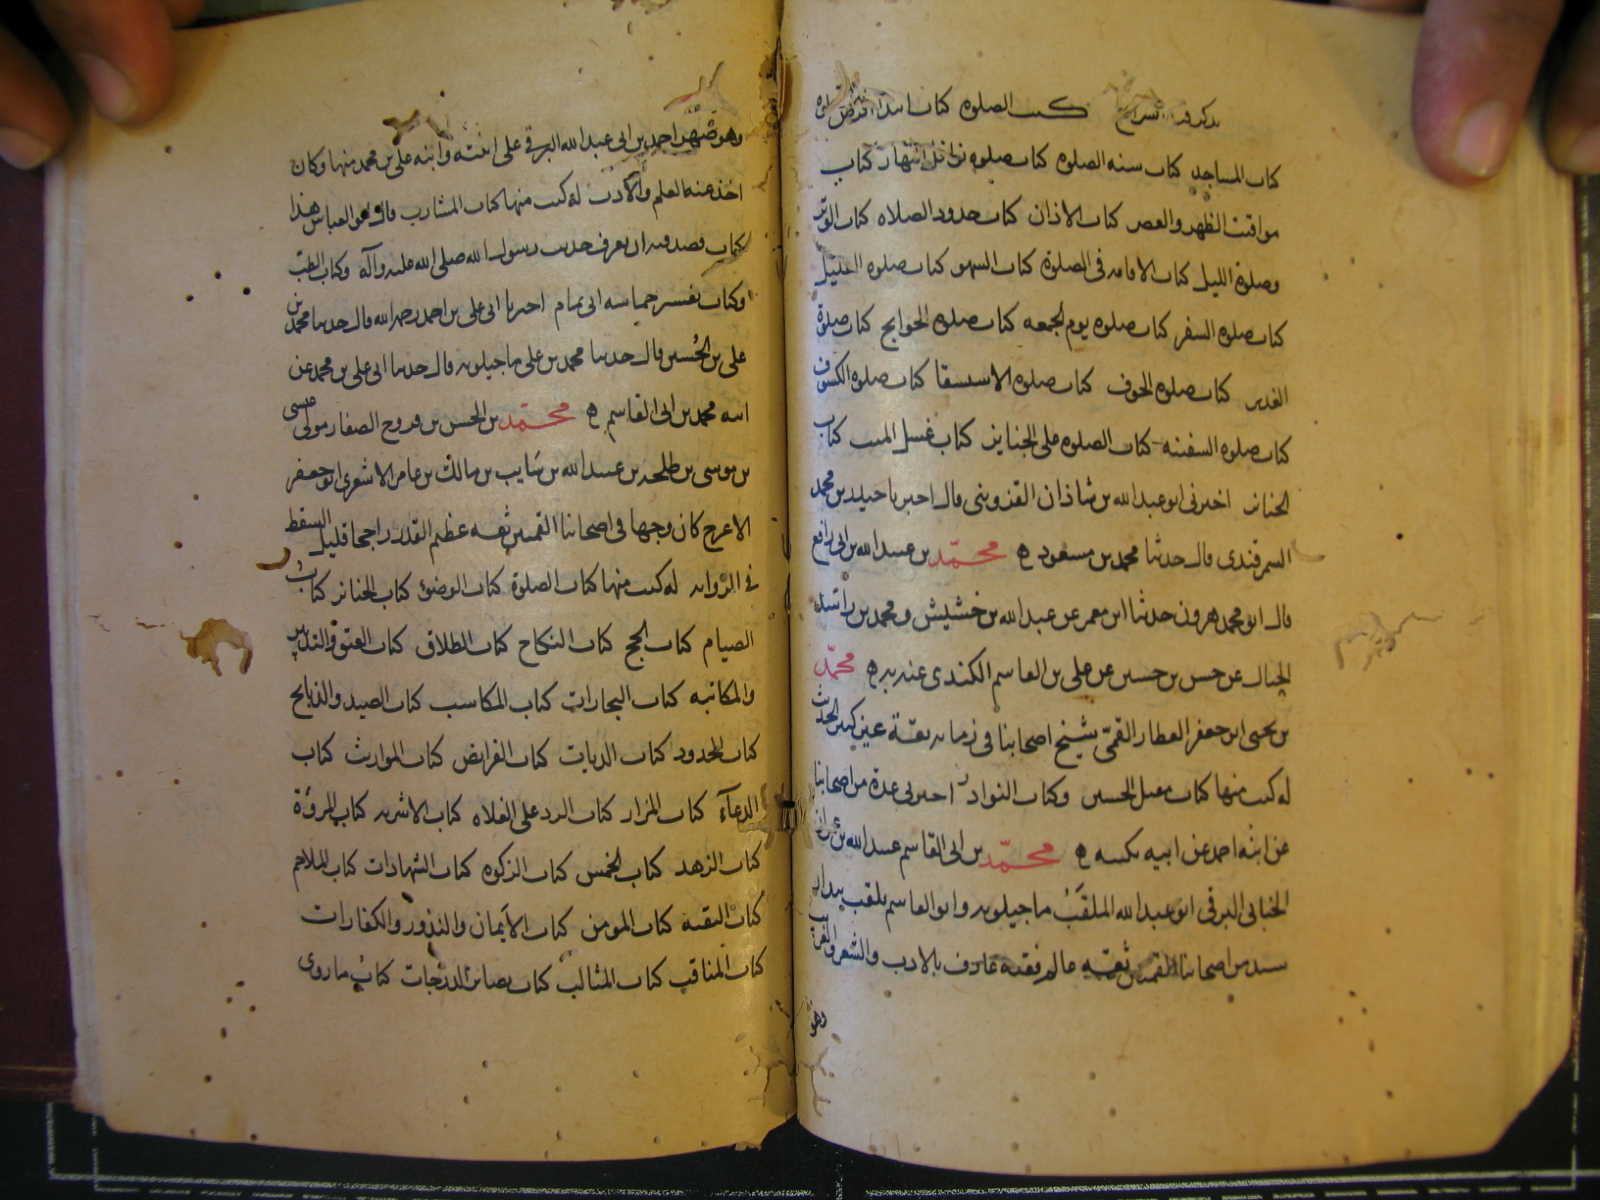 يذكر فيه شرائع كتب الصلوة كتاب ابتداء فرض الصلوة
كتاب المساجد كتاب سنه الصلوة كتاب صلوه نوافل النهار كتاب
مواقيت الظهر والعصر كتاب الاذان كتاب حدود الصلاه كتاب الوتر
وصلوة الليل كتاب الامامه فى الصلوة كتاب السهو كتاب صلوه العليل
كتاب صلوه السفر كتاب صلوه يوم الجمعه كتاب صلوه الحوايج كتاب صلوة
الغدير كتاب صلوه الخوف كتاب صلوه الاستسقا كتاب صلوه الكسوف
كتاب صلوه السفينه كتاب الصلوه على الجنايز كتاب غسل الميت كتاب
الجنائز اخبرنى ابو عبد الله بن شاذان القزوينى قال اخبرنا حيدر بن محمد
السمرقندى قال حدثنا محمد بن مسعود ه محمّد بن عبد الله بن ابى رافع
قال ابو محمد هرون حدثنا ابن معمر عن عبد الله بن خشيش ومحمد بن راشد
الحبال عن حسن بن حسين عن على بن القاسم الكندى عنه به ه محمّد
بن يحيى ابو جعفر العطار القمّى شيخ اصحابنا فى زمانه ثقة عين كثير الحديث
له كتب منها كتاب مقتل الحسين وكتاب النوادر اخبرنى عدة من اصحابنا
عن ابنه احمد عن ابيه بكتبه ه محمّد بن ابى القاسم عبيد الله بن عمران
الجنابى البرقى ابو عبد الله الملقَّب ماجيلويه وابو القاسم يلقب بندار
سيد من اصحابنا القميين ثقه عالم فقيه عارف بالادب والشعر والغريب
وهو
وهو صهر احمد بن ابى عبد الله البرقى على ابنته وابنه على بن محمد منها وكان
اخذ عنه العلم والادب له كتب منها كتاب المشارب قال ابو العباس هذا
كتاب قصد فيه ان يعرف حديث رسول الله صلى الله عليه وآله وكتاب الطب
وكتاب تفسير حماسه ابى تمام اخبرنا ابى على بن احمد رحمه الله قال حدثنا محمد بن
على بن الحُسين قال حدثنا محمد بن على ماجيلويه قال حدثنا ابى على بن محمد عن
ابيه محمد بن ابى القاسم ه محمّد بن الحسن بن فروخ الصفار مولى عيسى
بن موسى بن طلحه بن عبيد الله بن سَايب بن مالك بن عامر الاشعرى ابو جعفر
الاعرج كان وجها فى اصحابنا القميين ثقه عظيم القدر راجحا قليل السقط
فى الروايه له كتب منها كتاب الصلوة كتاب الوضوء كتاب الجنائز كتاب
الصيام كتاب الحج كتاب النكاح كتاب الطلاق كتاب العتق والتدبير
والمكاتبه كتاب التجارات كتاب المكاسب كتاب الصيد والذبايح
كتاب الحدود كتاب الديات كتاب الفرايض كتاب المواريث كتاب
الدعآء كتاب المزار كتاب الرد على الغلاه كتاب الاشربه كتاب المروَة
كتاب الزهد كتاب الخمس كتاب الزكوه كتاب الشهادات كتاب الملاحم
كتاب التقيه كتاب المومن كتاب الاَيمان والنذور والكفارات
كتاب المناقب كتاب المثالب كتاب بصائر الدرجات كتاب ما روى